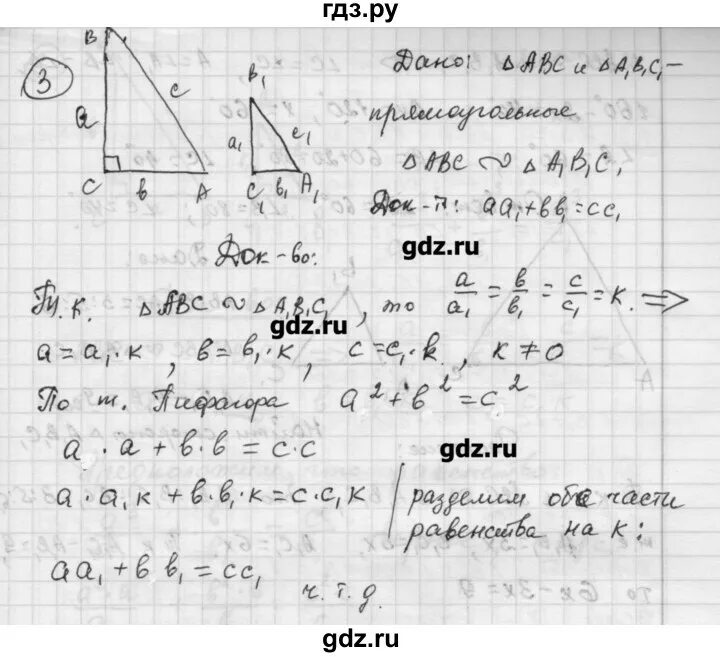 гдз.ру
3
B
a
c
C
b
A
B₁
a₁
c₁
C₁
b₁
A₁
Дано: △ABC и △A₁B₁C₁ –
прямоугольные
△ABC ∾ △A₁B₁C₁
Док-ть: aa₁+bb₁=cc₁
gdz.ru
Док-во:
Т.к. △ABC ∾ △A₁B₁C₁, то a/a₁ = b/b₁ = c/c₁ = k. ⇒
gdz.ru
a = a₁·k, b = b₁·k, c = c₁·k, k ≠ 0
По т. Пифагора a² + b² = c²
gdz.ru
a · a + b · b = c · c
a · a₁k + b · b₁ · k = c · c₁k | разделим обе части
равенства на k:
aa₁ + b b₁ = cc₁
ч.т.д.
gdz.ru